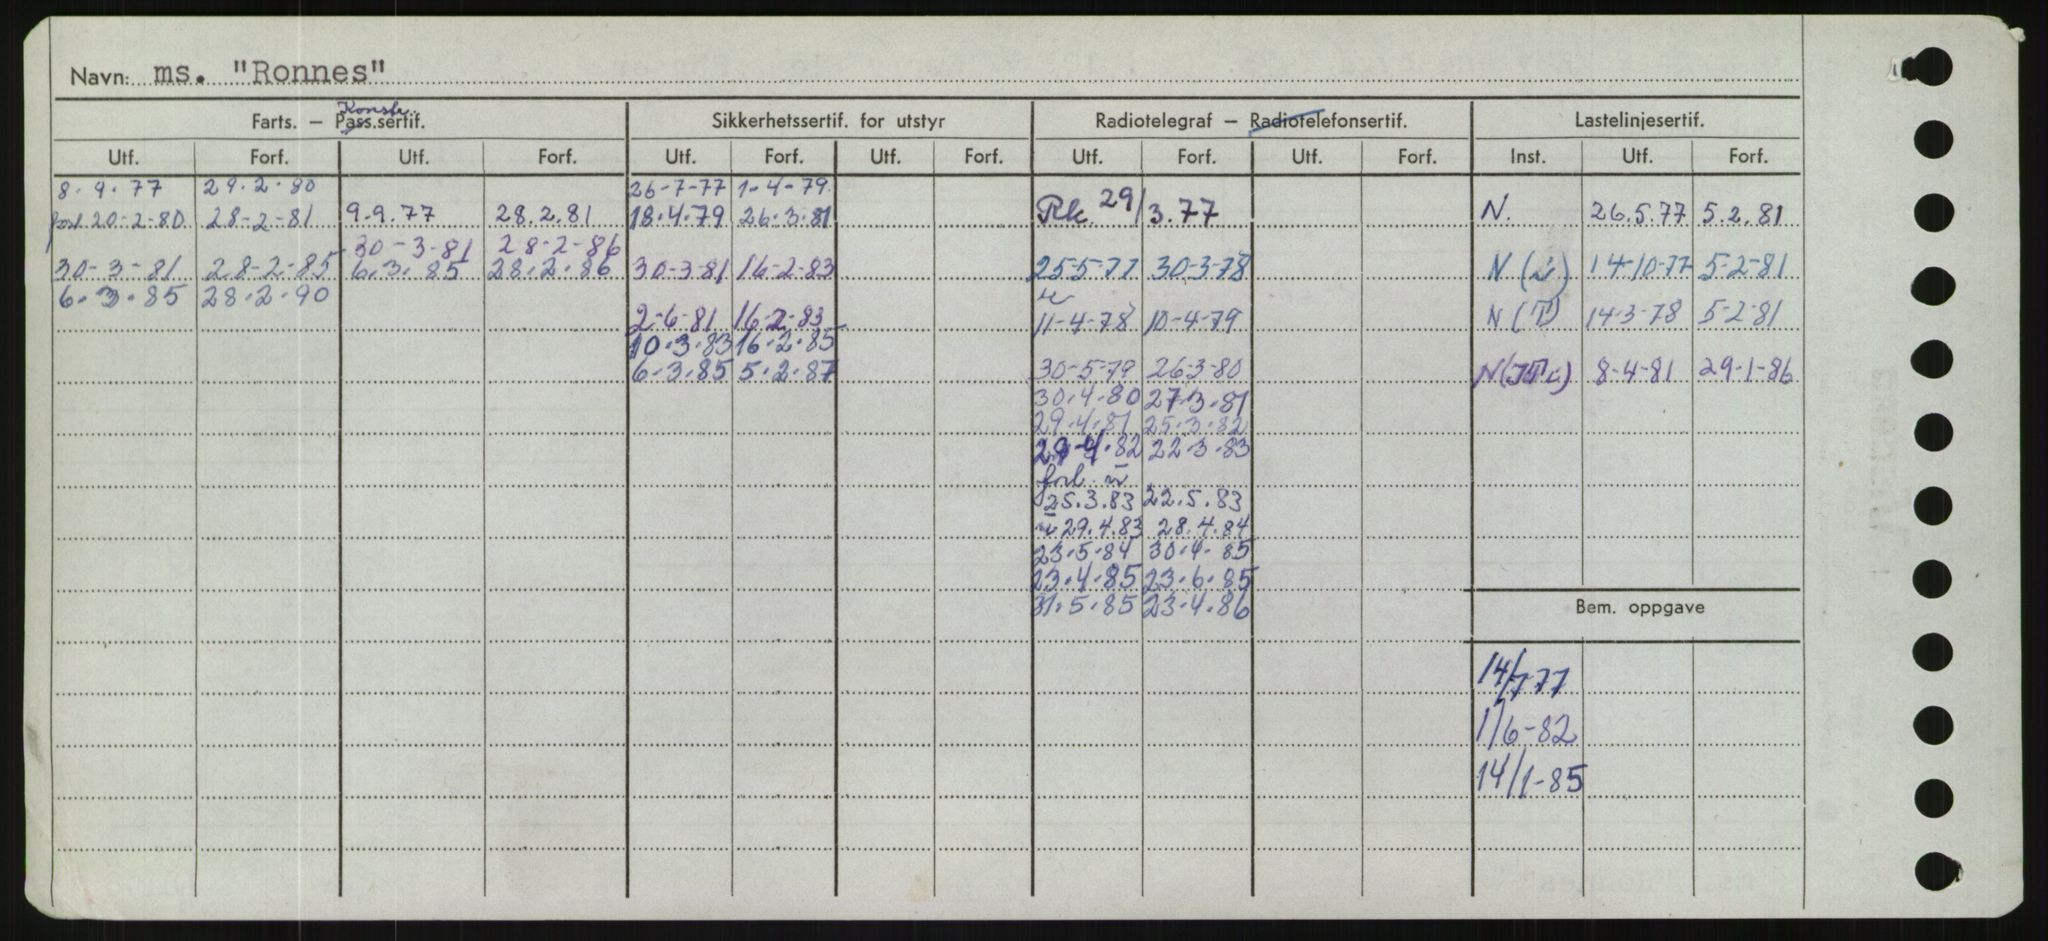 Navn: ms. "Ronnes"
Konstr.
Farts. — Pass.sertif. Sikkerhetssertif. for utstyr Radiotelegraf — Radiotelefonsertif. Lastelinjesertif.
Utf. Forf. Utf. Forf. Utf. Forf. Utf. Forf. Utf. Forf. Utf. Forf. Inst. Utf. Forf.
8.9.77 29.2.80 26-7-77 1-4-79
20-2-80 28-2-81 9.9.77 28.2.81 18.4.79 26.3.81 Rk. 29/3.77 N. 26.5.77 5.2.81
30-3-81 28-2-86
30-3-81 28-2-85 6.3.85 28.2.86 30-3-81 16-2-83 25-5-77 30-3-78 N (i) 14-10-77 5-2-81
6.3.85 28.2.90
2-6-81 16-2-83 11-4-78 10-4-79 N (T) 14-3-78 5-2-81
10.3.83 16.2.85
6.3.85 5.2.87 30-5-79 26-3-80 8-4-81 29-1-86
30.4.80 27.3.81
29.4.81 25.3.82
29.4.82 22.3.83
forl.
25.3.83 22.5.83
29.4.83 28.4.84
23.5.84 30.4.85
23.4.85 23.6.85
31.5.85 23.4.86
Bem. oppgave
14/7 77
1/6-82
14/1-85